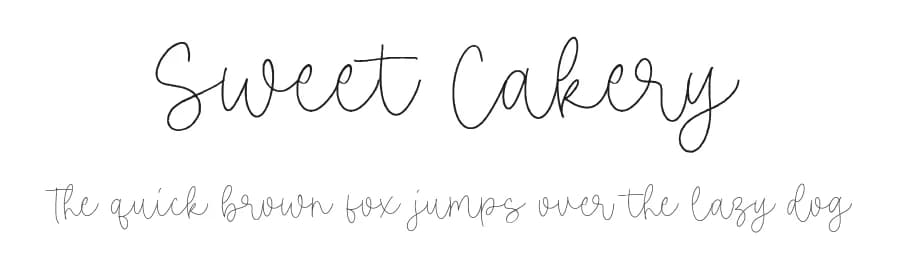 Sweet Cakery
The quick brown fox jumps over the lazy dog